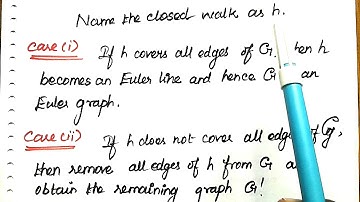 Name the closed walk as h.
Case(i) If h covers all edges of G, then h
becomes an Euler line and hence G an
Euler graph.
Case(ii) If h does not cover all edges of G,
then remove all edges of h from G a
obtain the remaining graph G!